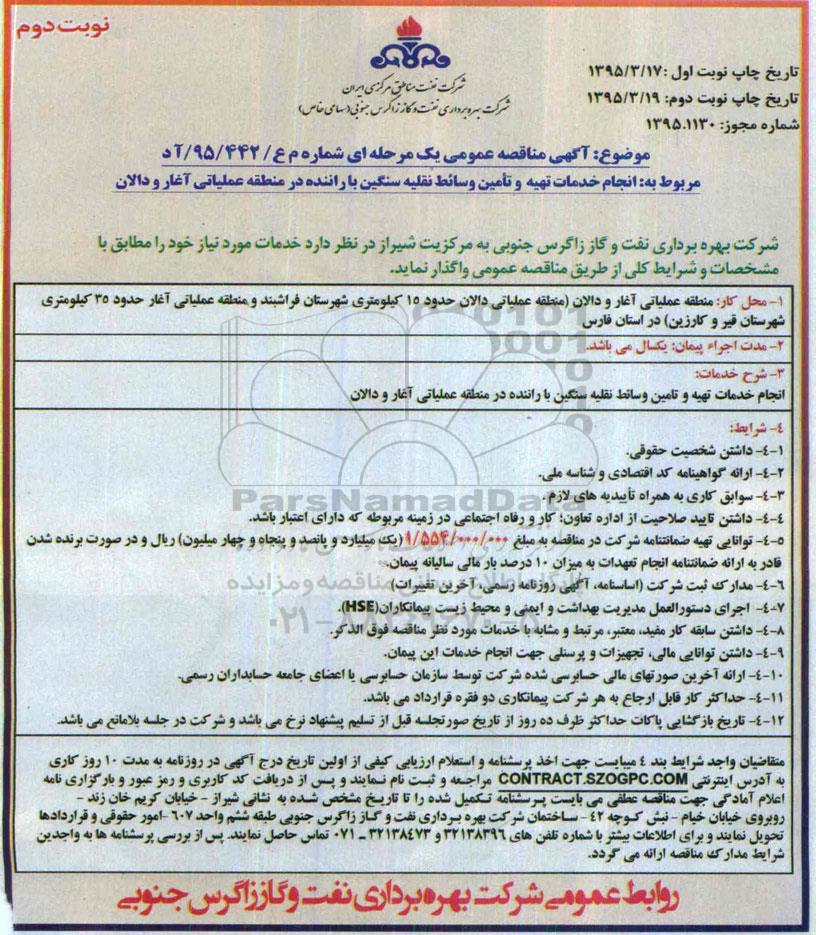 نوبت دوم
شرکت نفت مناطق مرکزی ایران
شرکت بهره برداری نفت و گاز زاگرس جنوبی (سهامی خاص)
تاریخ چاپ نوبت اول : ۱۳۹۵/۳/۱۷
تاریخ چاپ نوبت دوم: ۱۳۹۵/۳/۱۹
شماره مجوز: ۱۳۹۵.۱۱۳۰
موضوع: آگهی مناقصه عمومی یک مرحله ای شماره م ع/۹۵/۴۴۲/آ د
مربوط به: انجام خدمات تهیه و تأمین وسائط نقلیه سنگین با راننده در منطقه عملیاتی آغار و دالان
شرکت بهره برداری نفت و گاز زاگرس جنوبی به مرکزیت شیراز در نظر دارد خدمات مورد نیاز خود را مطابق با
مشخصات و شرایط کلی از طریق مناقصه عمومی واگذار نماید.
۱- محل کار: منطقه عملیاتی آغار و دالان (منطقه عملیاتی دالان حدود ۱۵ کیلومتری شهرستان فراشبند و منطقه عملیاتی آغار حدود ۳۵ کیلومتری
شهرستان قیر و کارزین) در استان فارس
۲- مدت اجراء پیمان: یکسال می باشد.
۳- شرح خدمات:
انجام خدمات تهیه و تامین وسائط نقلیه سنگین با راننده در منطقه عملیاتی آغار و دالان
۴- شرایط:
۴-۱- داشتن شخصیت حقوقی.
۴-۲- ارائه گواهینامه کد اقتصادی و شناسه ملی.
۴-۳- سوابق کاری به همراه تأییدیه های لازم .
۴-۴- داشتن تایید صلاحیت از اداره تعاون؛ کار و رفاه اجتماعی در زمینه مربوطه که دارای اعتبار باشد.
۴-۵- توانایی تهیه ضمانتنامه شرکت در مناقصه به مبلغ ۱/۵۵۴/۰۰۰/۰۰۰ (یک میلیارد و پانصد و پنجاه و چهار میلیون) ریال و در صورت برنده شدن
قادر به ارائه ضمانتنامه انجام تعهدات به میزان ۱۰ درصد بار مالی سالیانه پیمان.
۴-۶- مدارک ثبت شرکت (اساسنامه، آگهی روزنامه رسمی، آخرین تغییرات)
۴-۷- اجرای دستورالعمل مدیریت بهداشت و ایمنی و محیط زیست پیمانکاران(HSE).
۴-۸- داشتن سابقه کار مفید، معتبر، مرتبط و مشابه با خدمات مورد نظر مناقصه فوق الذکر.
۴-۹- داشتن توانایی مالی، تجهیزات و پرسنلی جهت انجام خدمات این پیمان.
۴-۱۰- ارائه آخرین صورتهای مالی حسابرسی شده شرکت توسط سازمان حسابرسی یا اعضای جامعه حسابداران رسمی.
۴-۱۱- حداکثر کار قابل ارجاع به هر شرکت پیمانکاری دو فقره قرارداد می باشد.
۴-۱۲- تاریخ بازگشایی پاکات حداکثر ظرف ده روز از تاریخ صورتجلسه قبل از تسلیم پیشنهاد نرخ می باشد و شرکت در جلسه بلامانع می باشد.
متقاضیان واجد شرایط بند ۴ میبایست جهت اخذ پرسشنامه و استعلام ارزیابی کیفی از اولین تاریخ درج آگهی در روزنامه به مدت ۱۰ روز کاری
به آدرس اینترنتی CONTRACT.SZOGPC.COM مراجعه و ثبت نام نمایند و پس از دریافت کد کاربری و رمز عبور و بارگزاری نامه
اعلام آمادگی جهت مناقصه عطفی می بایست پرسشنامه تکمیل شده را تا تاریخ مشخص شده به نشانی شیراز - خیابان کریم خان زند -
روبروی خیابان خیام - نبش کوچه ۴۲- ساختمان شرکت بهره برداری نفت و گاز زاگرس جنوبی طبقه ششم واحد ۶۰۷ -امور حقوقی و قراردادها
تحویل نمایند و برای اطلاعات بیشتر با شماره تلفن های ۳۲۱۳۸۳۹۶ و ۳۲۱۳۸۴۷۳ ـ ۰۷۱ تماس حاصل نمایند. پس از بررسی پرسشنامه ها به واجدین
شرایط مدارک مناقصه ارائه می گردد.
روابط عمومی شرکت بهره برداری نفت و گاز زاگرس جنوبی
ParsNamadData